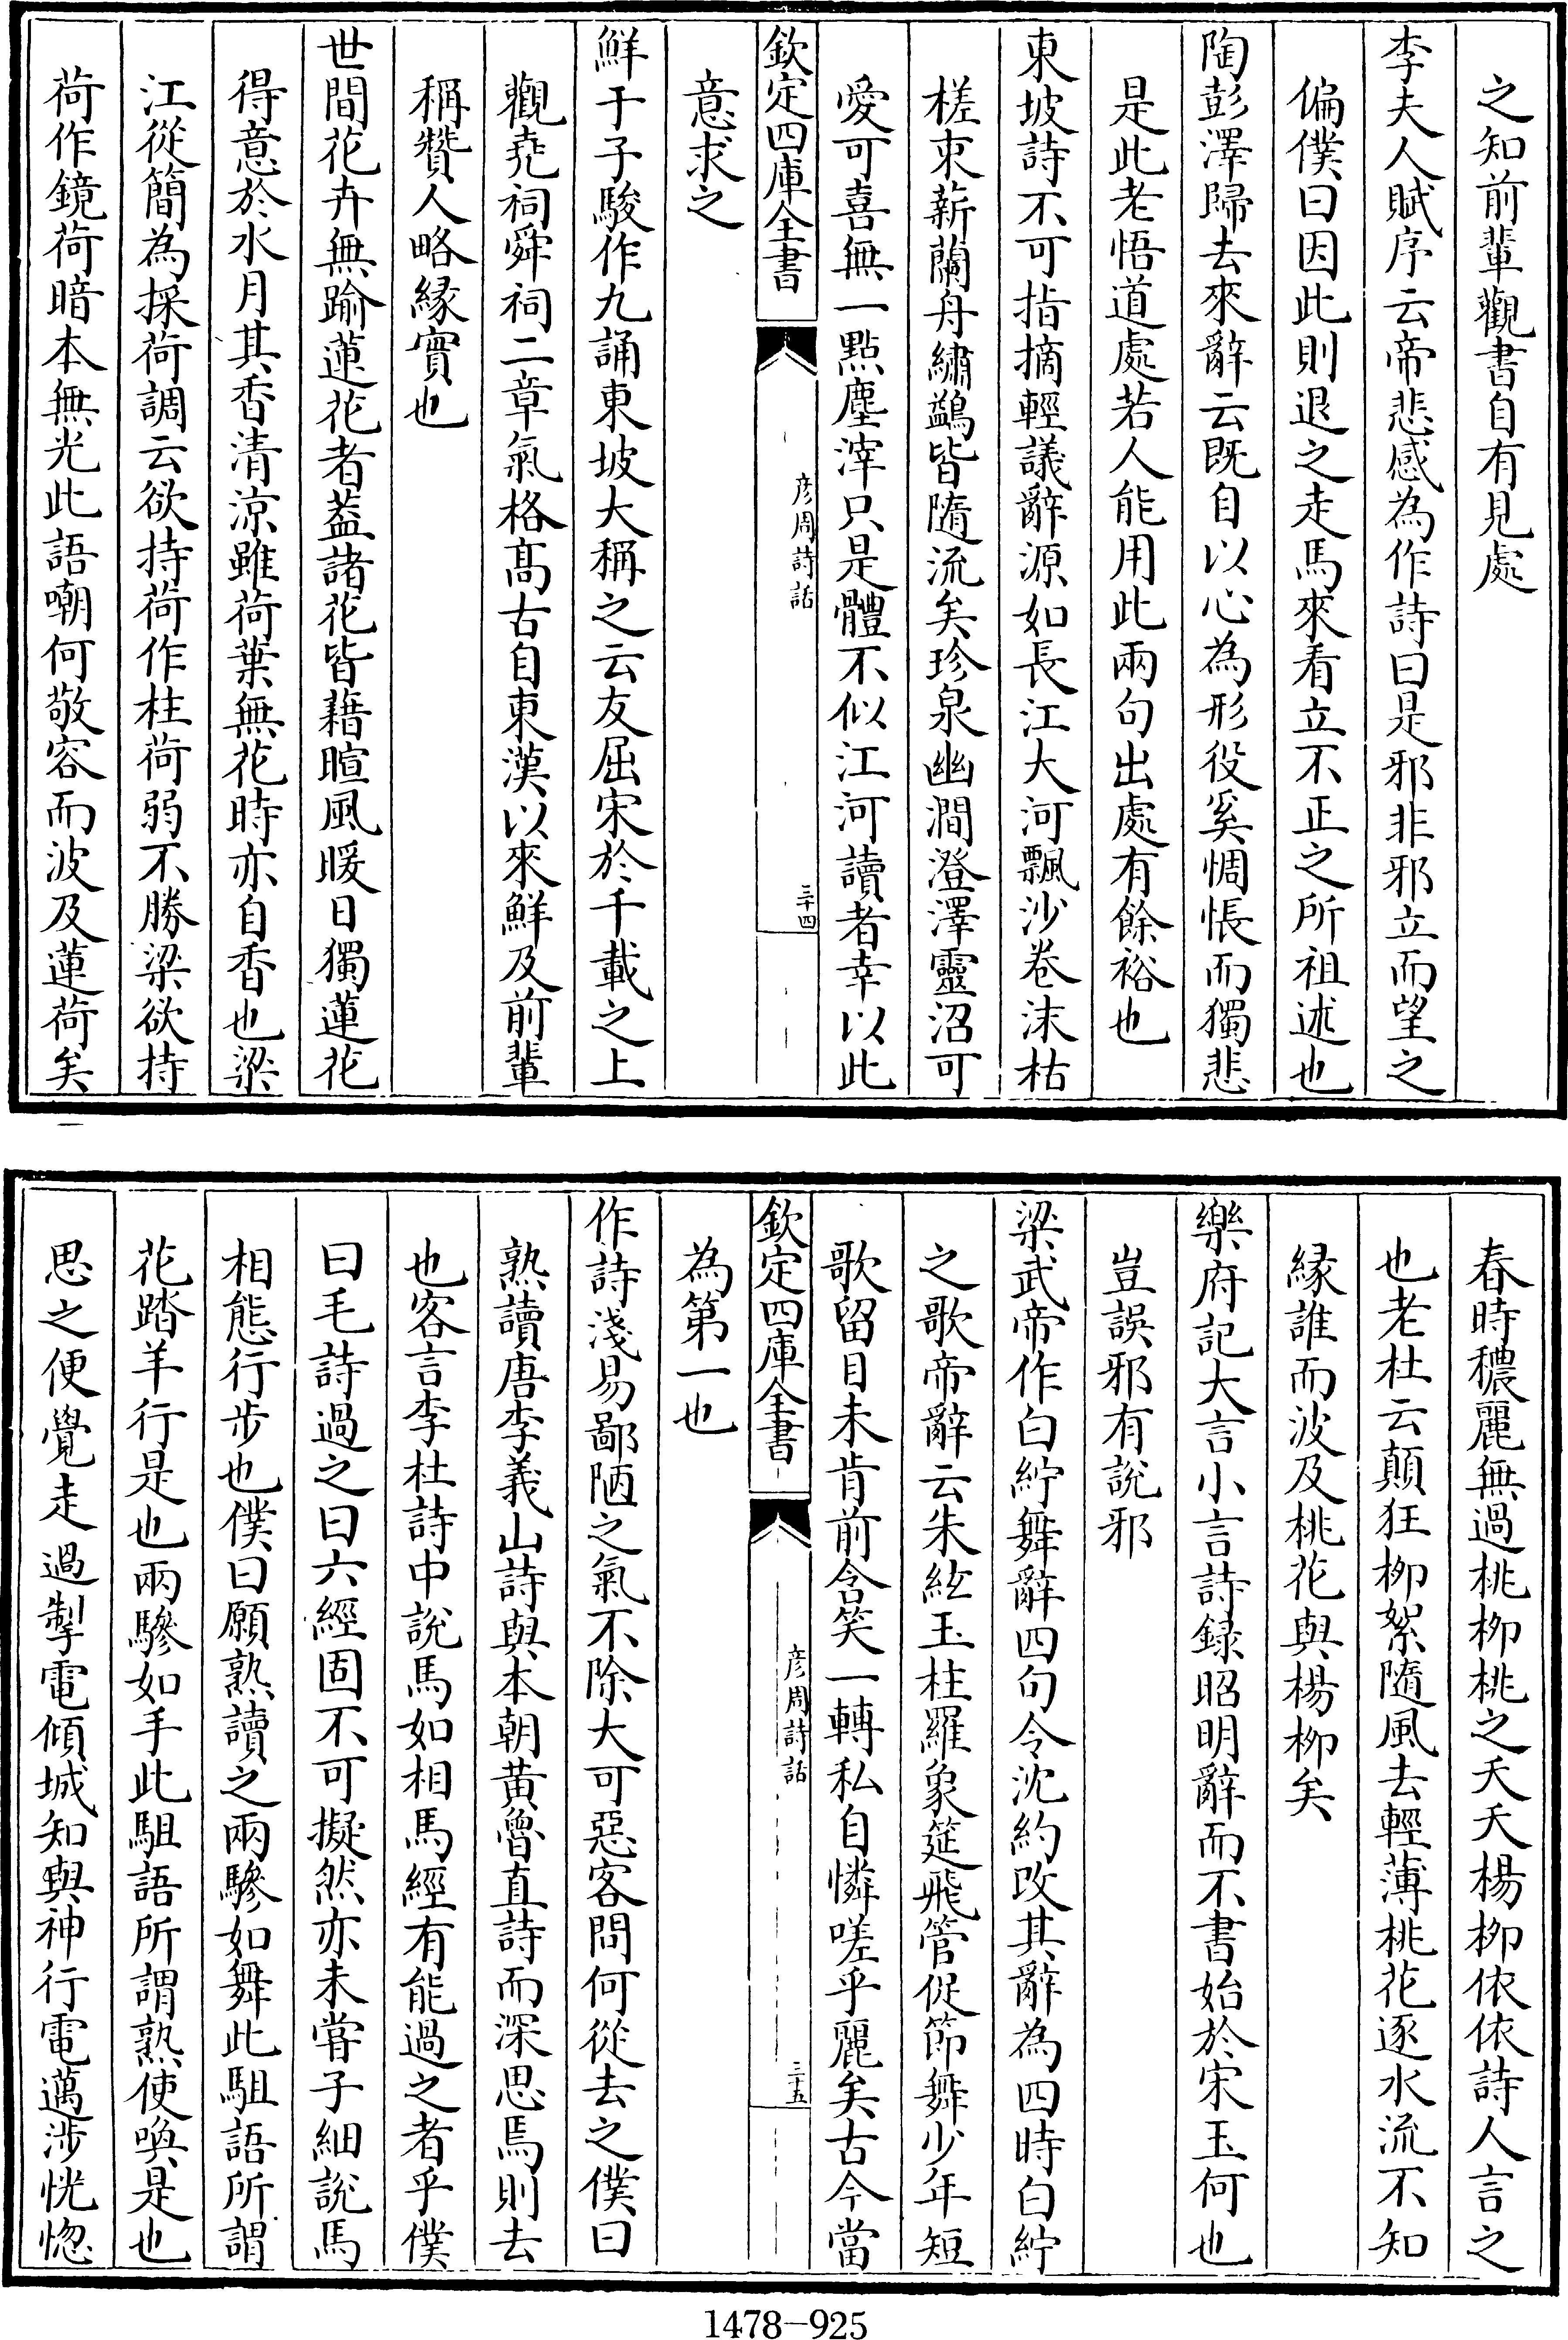 之知前輩觀書自有見處
李夫人賦序云帝悲感為作詩曰是邪非邪立而望之
偏僕曰因此則退之走馬來看立不正之所祖述也
陶彭澤歸去來辭云既自以心為形役奚惆悵而獨悲
是此老悟道處若人能用此兩句出處有餘裕也
東坡詩不可指摘輕議辭源如長江大河飄沙卷沫枯
槎束薪蘭舟繡鷁皆隨流矣珍泉幽澗澄澤靈沼可
愛可喜無一點塵滓只是體不似江河讀者幸以此
欽定四庫全書
彦周詩話
三十四
意求之
鮮于子駿作九誦東坡大稱之云友屈宋於千載之上
觀堯祠舜祠二章氣格髙古自東漢以來鮮及前輩
稱贊人略緣實也
世間花卉無踰蓮花者葢諸花皆藉暄風暖日獨蓮花
得意於水月其香清涼雖荷葉無花時亦自香也梁
江從簡為採荷調云欲持荷作柱荷弱不勝梁欲持
荷作鏡荷暗本無光此語嘲何敬容而波及蓮荷矣
春時穠麗無過桃柳桃之夭夭楊柳依依詩人言之
也老杜云顛狂柳絮隨風去輕薄桃花逐水流不知
緣誰而波及桃花與楊柳矣
樂府記大言小言詩録昭明辭而不書始於宋玉何也
豈誤邪有說邪
梁武帝作白紵舞辭四句令沈約改其辭為四時白紵
之歌帝辭云朱絃玉柱羅象筵飛管促節舞少年短
歌留目未肯前含笑一轉私自憐嗟乎麗矣古今當
欽定四庫全書
彦周詩話
三十五
為第一也
作詩淺易鄙陋之氣不除大可惡客問何從去之僕曰
熟讀唐李義山詩與本朝黃魯直詩而深思焉則去
也客言李杜詩中說馬如相馬經有能過之者乎僕
曰毛詩過之曰六經固不可擬然亦未嘗子細說馬
相態行步也僕曰願熟讀之兩驂如舞此駔語所謂
花踏羊行是也兩驂如手此駔語所謂熟使喚是也
思之便覺走過掣電傾城知與神行電邁涉恍惚
1478-925